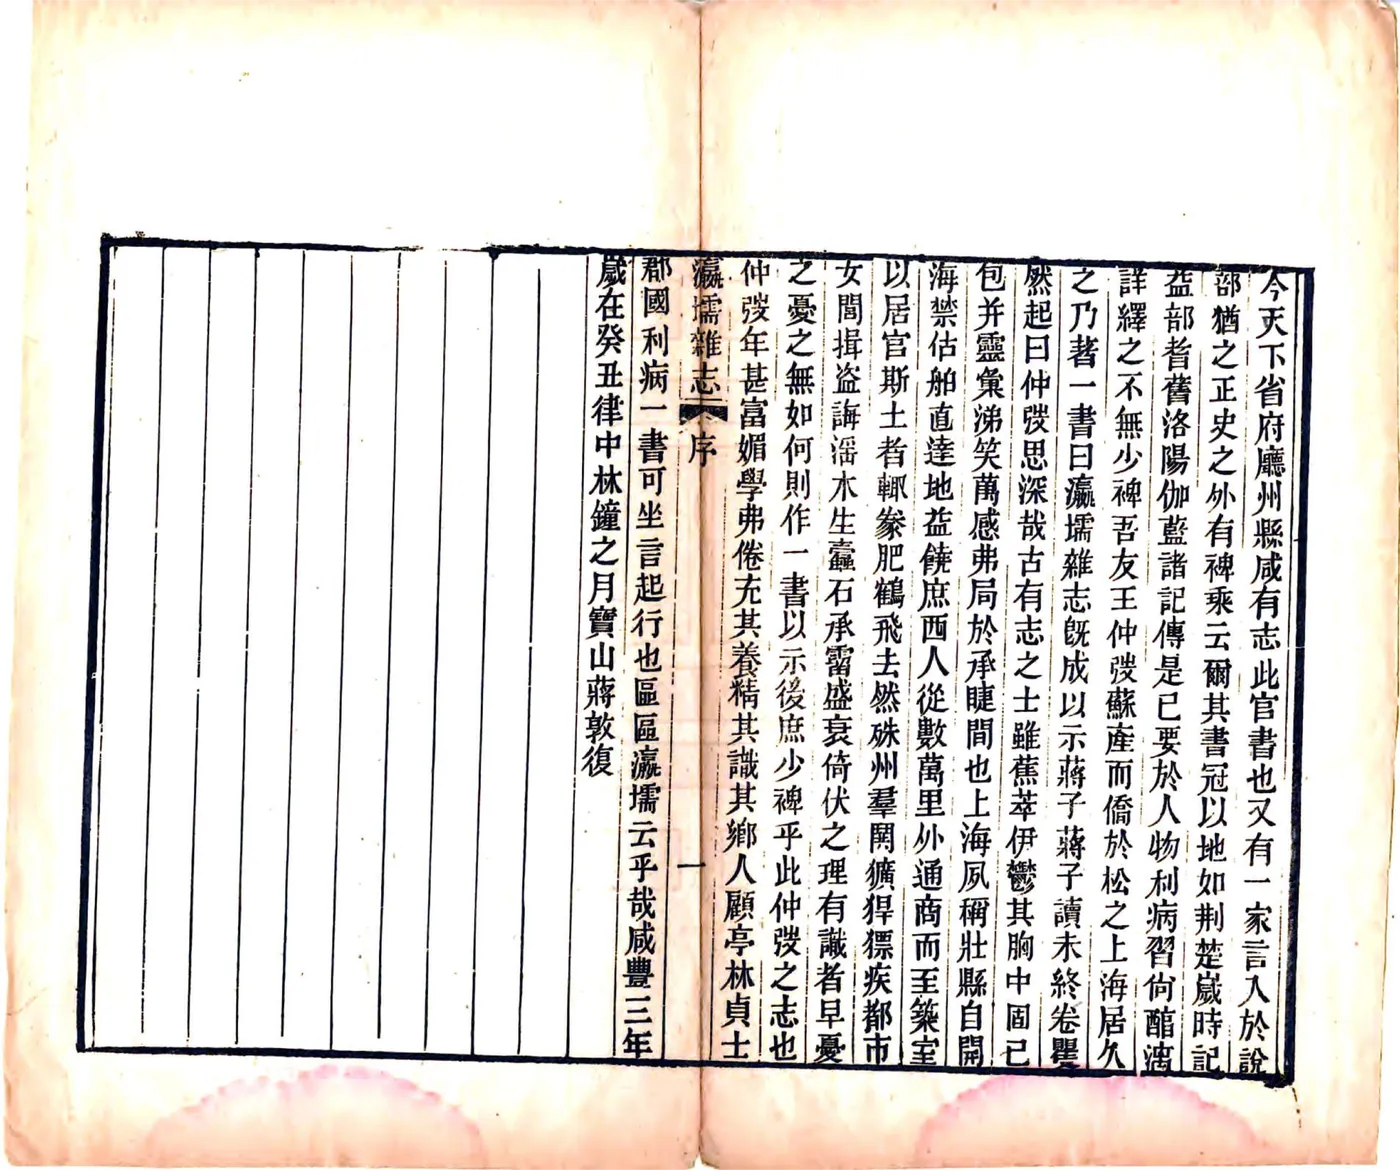 今天下省府廳州縣咸有志此官書也又有一家言入於說
部猶之正史之外有稗乘云爾其書冠以地如荆楚嵗時記
益部耆舊洛陽伽藍諸記傳是已要於人物利病習尙醇漓
詳繹之不無少裨吾友王仲弢蘇產而僑於松之上海居久
之乃著一書曰瀛壖雜志旣成以示蔣子蔣子讀未終卷瞿
然起曰仲弢思深哉古有志之士雖蕉萃伊鬱其胸中固已
包并靈彙涕笑萬感弗局於承睫間也上海夙稱壯縣自開
海禁估舶直達地益饒庶西人從數萬里外通商而至築室
以居官斯土者輒豢肥鶴飛去然硃州羣罔獷猂獘疾都市
女閭揖盜誨滛木生蠧石承霤盛衰倚伏之理有識者早憂
之憂之無如何則作一書以示後庶少裨乎此仲弢之志也
仲弢年甚富媚學弗倦充其養精其識其鄉人顧亭林貞士
瀛壖雜志 序 一
郡國利病一書可坐言起行也區區瀛壖云乎哉咸豐三年
嵗在癸丑律中林鐘之月寶山蔣敦復